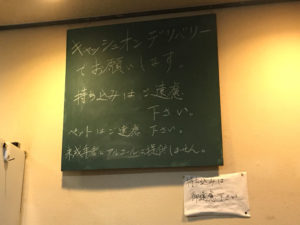 キャッシュオンデリバリー
でお願いします。
持ち込みはご遠慮
下さい。
ペットはご遠慮下さい。
未成年者にアルコールは提供しません。
持ち込みは
御遠慮下さい